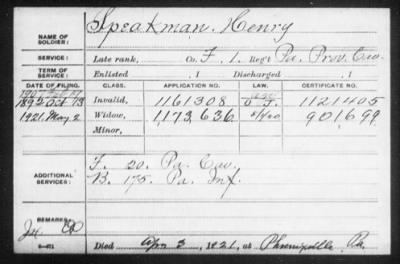 NAME OF SOLDIER: Speakman, Henry
SERVICE: Late rank, Co. F, 1, Reg't Pa. Prov. Cav.
TERM OF SERVICE: Enlisted , 1 Discharged , 1
DATE OF FILING. CLASS. APPLICATION NO. LAW. CERTIFICATE NO.
1892 Oct 13 Invalid, 1161308 1121405
1921, May 2 Widow, 1,173,636 901699
Minor,
ADDITIONAL SERVICES: F. 20. Pa. Cav.
B. 175. Pa. Inf.
REMARKS:
Died Apr 3, 1921, at Phoenixville, Pa.